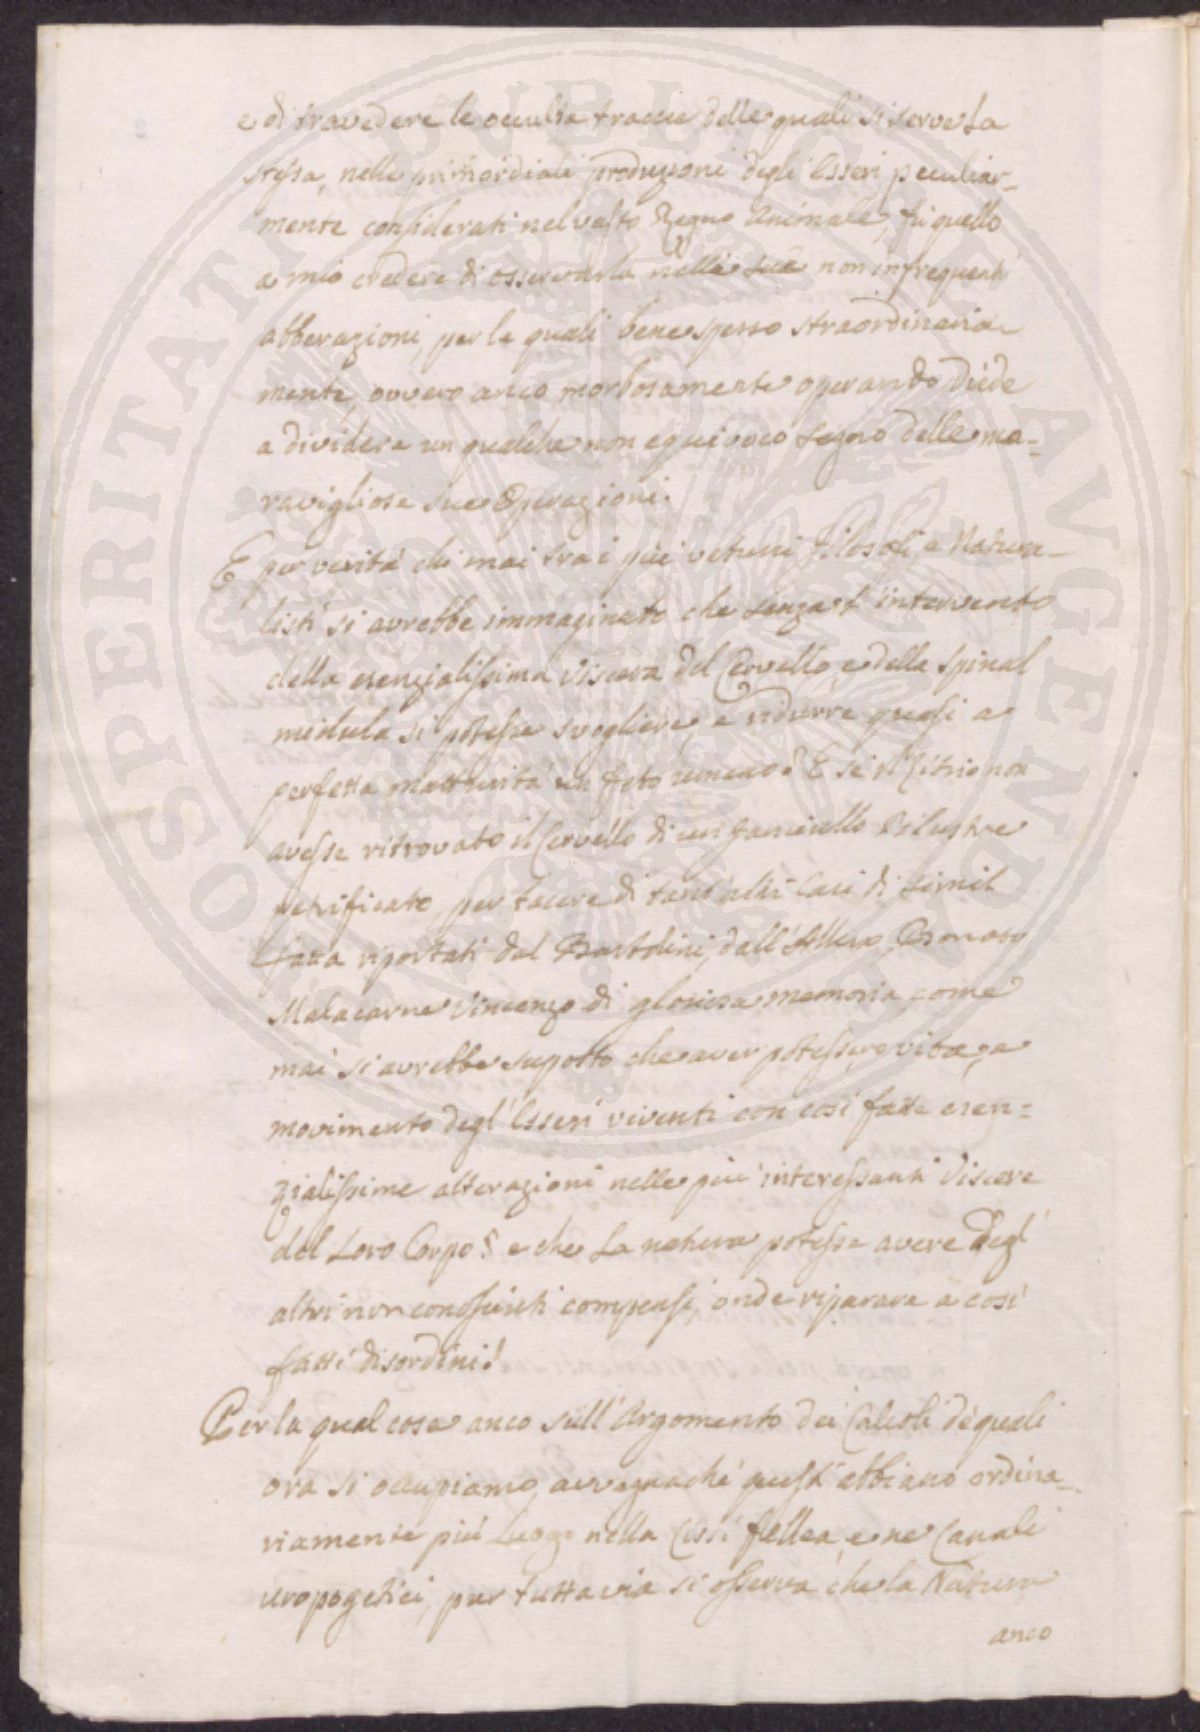 e di travedere le occulte traccie delle quali si serve La
stessa, nelle primordiali produzioni degli Esseri peculiar-
mente considerati nel vasto Regno Animale, fu quello
a mio credere di osservarla nelle sue non infrequenti
abberazioni, per le quali bene spesso straordinaria
mente, ovvero anco morbosamente operando diede
a dividere un qualche non equivoco segno delle ma-
ravigliose sue Operazioni.
E per verità chi mai tra i più vetusti Filosofi, e Natura-
listi si avrebbe immaginato che senza l'intervento
della esenzialissima Viscera del Cervello, e della spinal
midula si potesse svogliere, e ridurre quasi a
perfetta matturità un feto umano? E se il non
avesse ritrovato il Cervello di un fanciullo Bilustre
petrificato, per tacere di tant'altri Casi di simil
fatta riportati dal Bartolini, dall'Allero, Bonato
Malacarne Vincenzo di gloriosa memoria, come
mai si avrebbe suposto che aver potessero vita, e
movimento degl'Esseri viventi con così fatte esen-
zialissime alterazioni nelle più interessanti Viscere
del Loro Corpo? e che La natura potesse avere degl'
altri non conosciuti compensi, onde riparare a così
fatti disordini!
Per la qual cosa anco sull'Argomento dei Calcoli de quali
ora si occupiamo, avvegnachè questi abbiano ordina-
riamente più Luogo nella Cisti fellea, e ne Canali
uropogetici, pur tuttavia si osserva che la Natura
anco
PROSPERITATI PUBLICAE AUGENDAE